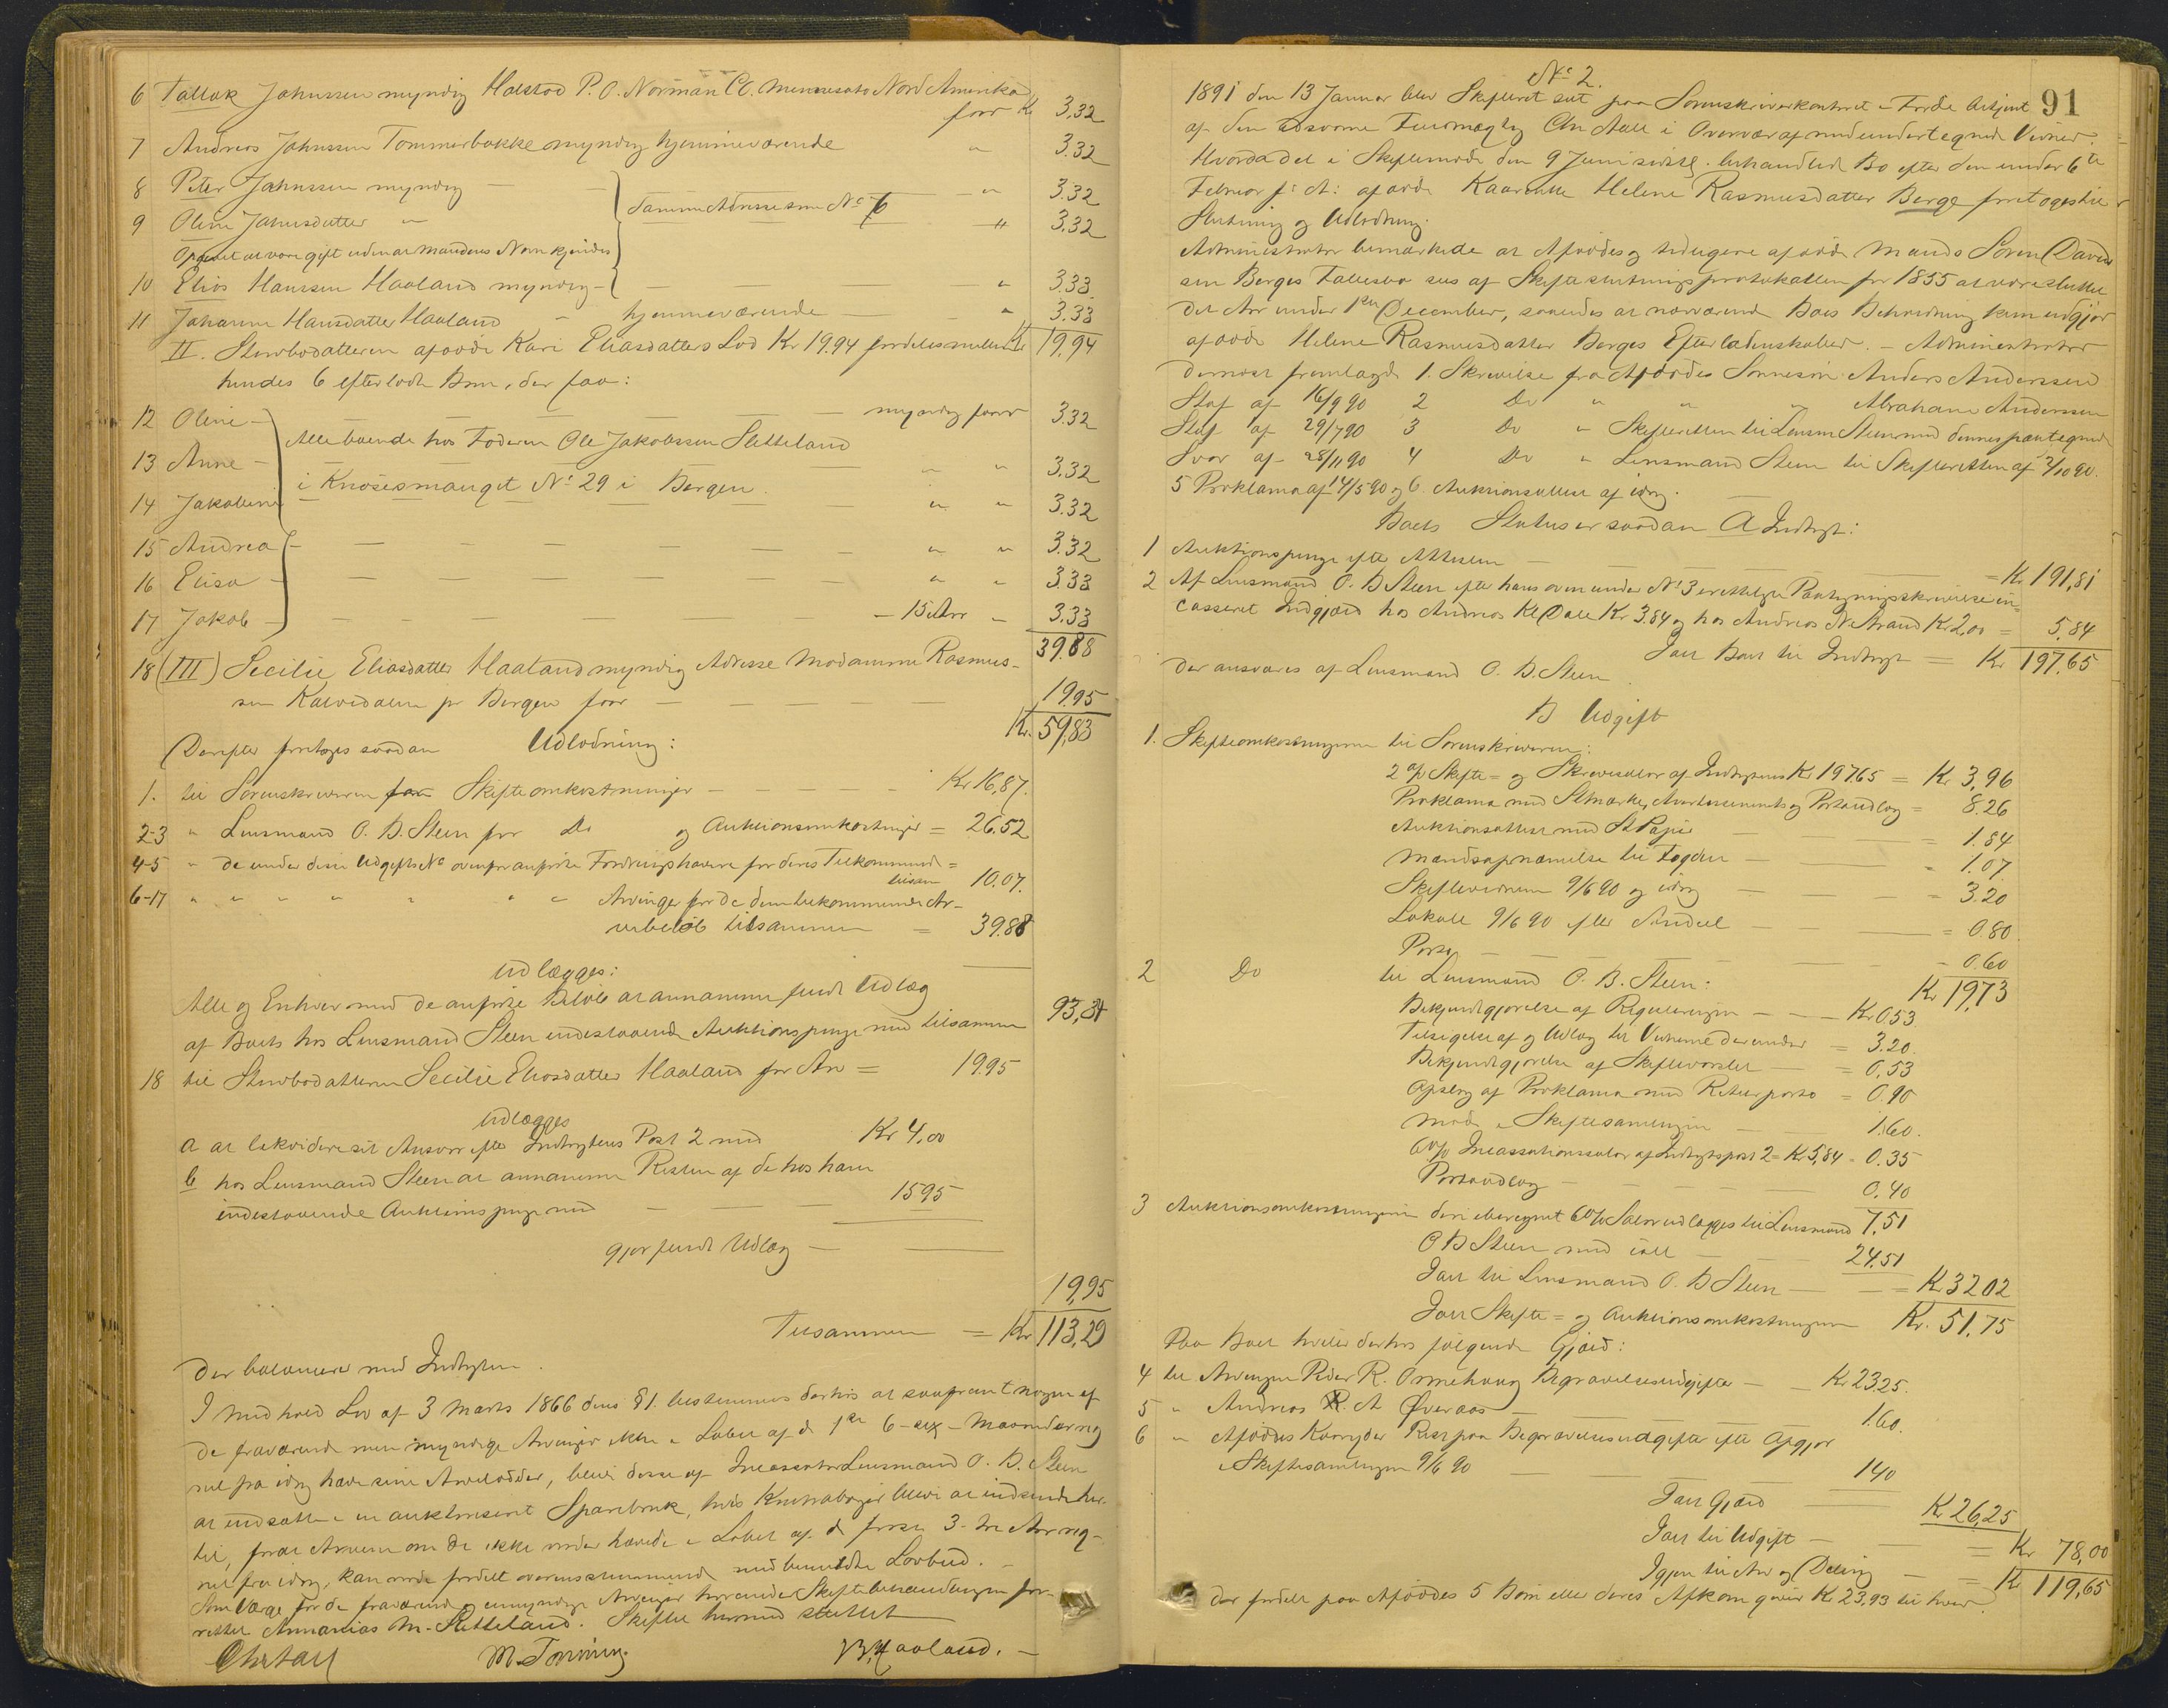 6 Tallak Johnssen myndig Halstad P. O. Norman Co. Minnesota Nord Amerika
faar Kr 3.32
7 Andreas Johnssen Tommerbakke myndig hjemmeværende " 3.32
8 Peter Johnssen myndig — " 3.32
9 Oline Johnsdatter " Samme Adresse som No 6 " 3.32
Opgivet at være gift uden at Mandens Navn kjendes
10 Elias Hanssen Haaland myndig — " 3.33
11 Johanne Hansdatter Haaland " hjemmeværende — " 3.33
II. Stervbodatteren afdøde Kari Eliasdatters Lod Kr 19.94 fordeles mellem Kr 19,94
hendes 6 efterladte Børn, der faa:
12 Oline — myndig faar 3.32
Alle boende hos Faderen Ole Jakobssen Sletteland
13 Anne — " " 3.32
i Knøsesmauget No 29 i Bergen.
14 Jakobine " " 3.32
15 Andrea — " " 3.32
16 Elisa — " " 3.33
17 Jakob — 15 Aar " 3.33
39.88
18 (III) Secilie Eliasdatter Haaland myndig Adresse Madamme Rasmus-
sen Kalvedalen pr Bergen faar — 19.95
Kr. 59,83
Derefter foretoges saadan Udlodning:
1. til Sorenskriveren for Skifteomkostninger — Kr 16,87.
2-3 " Lensmand O. B. Steen for Do og Auktionsomkostninger = 26.52
4-5 " de under disse Udgifts No ovenfor anførte Fordringshavere for deres Tilkommende =
tilsam 10.07.
6-17 " " " " " " " Arvinger for de dem tilkommende Ar-
vebeløb tilsammen = 39.88
udlægges:
Alle og Enhver med de anførte Beløb at annamme fuldt Udlæg
af Boets hos Lensmand Steen indestaaende Auktionspenge med tilsammen 93,34
18 til Stervbodatteren Secilie Eliasdatter Haaland for Arv = 19.95
udlægges
a at likvidere sit Ansvar efter Indtægtens Post 2 med Kr 4,00
b hos Lensmand Steen at annamme Resten af de hos ham
indestaaende Auktionspenge med — 15.95
gjør fuldt Udlæg —
19,95
Tilsammen = Kr 113,29
der balancerer med Indtægten.
I Medhold Lov af 3 Marts 1866 dens § 1. bestemmes derhos at saafremt nogen af
de fraværende men myndige Arvinger ikke i Løbet af de 1ste 6 - sex - Maaneder reg
net fra idag hæve sine Arvelodder, blive disse af Incassator Lensmand O. B. Steen
at indsætte i en auktoriseret Sparebank, hvis Kontrabøger blive at indsende her-
til, hvor Arven om de ikke vorder hævede i Løbet af de første 3 - tre Aar reg-
net fra idag, kan vorde fordelt overensstemmende med bemeldte Lovbud. —
Som Værge for de fraværende og umyndige Arvinger hørende Skiftebehandlingen fore-
rettet Annanias M. Sletteland. Skiftet hermed sluttet
Chr Aall M. Tonning. B. Haaland. —
91
No 2.
1891 den 13 Januar blev Skifteret sat paa Sorenskriverkontoret i Førde betjent
af den edsvorne Fuldmægtig Chr Aall i Overvær af medundertegnede Vidner.
Hvorda det i Skiftemøde den 9 Juni sidstl. behandlede Bo efter den under 6te
Februar f: A: afdøde Kaarenke Helene Rasmusdatter Berge foretoges til
Slutning og Udlodning.
Administrator bemærkede at Afdødes og tidligere afdøde Mands Søren David
sen Berges Fællesbo sees af Skifteslutningsprotokollen for 1855 at være sluttet
det Aar under 1ste December, saaledes at nærværende Boes Behandling kun udgjør
afdøde Helene Rasmusdatter Berges Efterladenskaber. — Administrator
dernæst fremlagde 1. Skrivelse fra Afdødes Sønnesøn Anders Anderssen
Staf af 16/9 90 2 Do " " " Abraham Anderssen
Staf af 29/7 90 3 Do " Skifteretten til Lensm Steen med dennes paategnede
Svar af 28/11 90 4 Do " Lensmand Steen til Skifteretten af 2/10 90.
5 Proklama af 14/5 90 og 6. Auktionsattest af idag.
Boets Status er saadan A Indtægt:
1 Auktionspenge efter Attesten — = Kr 191,81
2 Af Lensmand O. B Steen efter hans ovenunder No 3 erettelagte Paategningsskrivelse in-
casseret Indgjæld hos Andreas Kl Dale Kr 3.84 og hos Andreas N Strand Kr 2,00 = 5,84
Ialt Boet til Indtægt = Kr 197,65
der ansvares af Lensmand O. B. Steen
B Udgift
1. Skifteomkostningerne til Sorenskriveren:
2 % Skifte = og Skriversalær af Indtægtens Kr 197.65 = Kr 3,96
Proklama med Stmærke, Avertissements og Portoudlæg = 8.26
Auktionsattest med St Papir — = 1.84
Mandsopnævnelse til Fogden — = 1.07
Skiftevidnerne 9/6 90 og idag — = 3.20
Lokale 9/6 90 efter Andeel — = 0.80
Porto — = 0.60
Kr 19,73
2 Do til Lensmand O. B. Steen:
Bekjendtgjørelse af Registreringen — Kr 0.53
Tilsigelse af og Udlæg til Vidnerne derunder = 3.20.
Bekjendtgjørelse af Skiftevarslet — = 0,53
Opslag af Proklama med Returporto = 0.90
Møde i Skiftesamlingen — 1.60.
6 % Incassationssalær af Indtægtspost 2 = Kr 5,84 = 0.35
Portoudlæg — 0.40
7.51
3 Auktionsomkostningerne deri iberegnet 6 % Salær udlægges til Lensmand
O B Steen med ialt — 24,51
Ialt til Lensmand O. B Steen — = Kr 32.02
Ialt Skifte = og Auktionsomkostninger Kr. 51,75
Paa Boet hviler derhos følgende Gjæld:
4 til Arvingen Peder R. Ormehaug Begravelsesudgifter — Kr 23.25.
5 " Andreas R. A Øveraas — 1.60.
6 " Afdødes Kaaryder Rest paa Begravelsesudgifter efter Opgjør
i Skiftesamlingen 9/6 90 — 1.40
Ialt Gjæld — Kr 26,25
Ialt til Udgift — = Kr 78,00
Igjen til Arv og Deling — = Kr 119,65
der fordelt paa Afdødes 5 Børn eller deres Afkom giver Kr 23,93 til hver.